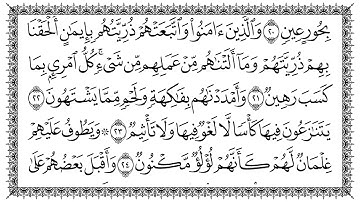 بِحُورٍ عِينٍ ٢٠ وَالَّذِينَ ءَامَنُوا وَاتَّبَعَتْهُمْ ذُرِّيَّتُهُم بِإِيمَٰنٍ أَلْحَقْنَا
بِهِمْ ذُرِّيَّتَهُمْ وَمَا أَلَتْنَٰهُم مِّنْ عَمَلِهِم مِّن شَيْءٍ ۚ كُلُّ امْرِئٍ بِمَا
كَسَبَ رَهِينٌ ٢١ وَأَمْدَدْنَٰهُم بِفَٰكِهَةٍ وَلَحْمٍ مِّمَّا يَشْتَهُونَ ٢٢
يَتَنَٰزَعُونَ فِيهَا كَأْسًا لَّا لَغْوٌ فِيهَا وَلَا تَأْثِيمٌ ٢٣ ۞ وَيَطُوفُ عَلَيْهِمْ
غِلْمَانٌ لَّهُمْ كَأَنَّهُمْ لُؤْلُؤٌ مَّكْنُونٌ ٢٤ وَأَقْبَلَ بَعْضُهُمْ عَلَىٰ